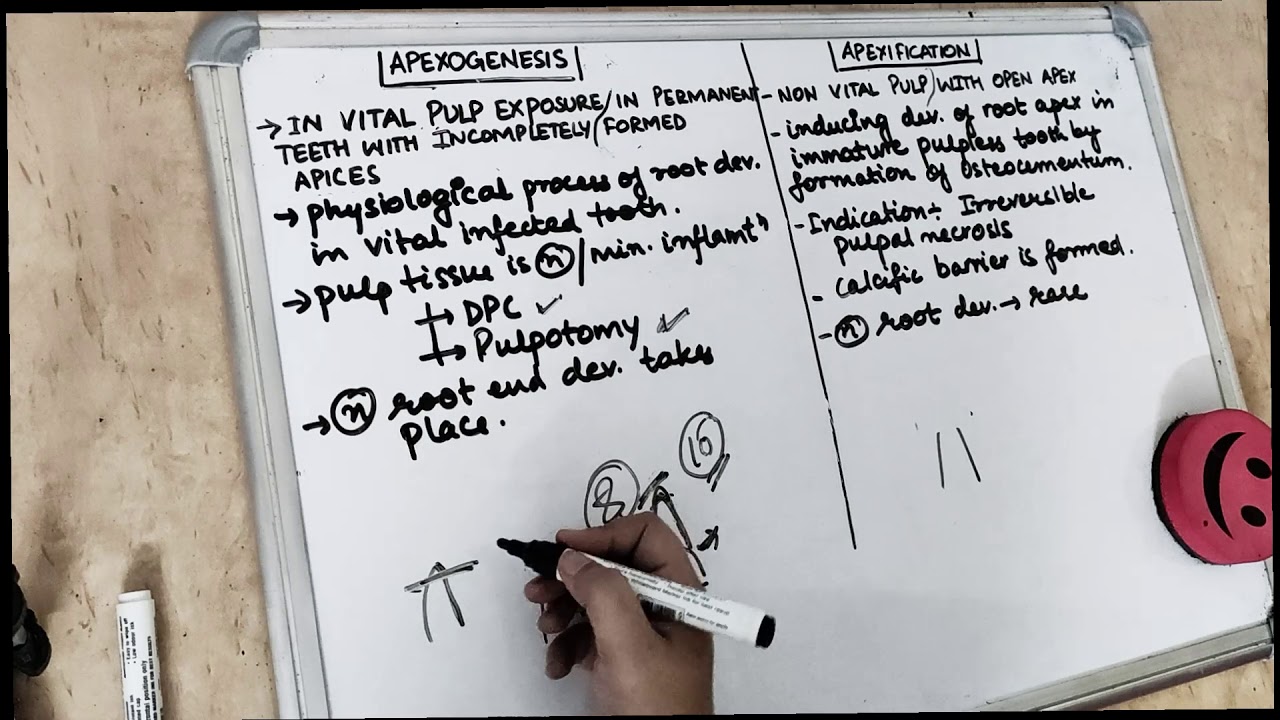 APEXOGENESIS
→ IN VITAL PULP EXPOSURE/IN PERMANENT
TEETH WITH INCOMPLETELY/FORMED
APICES
→ physiological process of root dev.
in vital infected tooth.
→ pulp tissue is n/min. inflamtⁿ
→ DPC ✓
→ Pulpotomy ✓
→ n root end dev. takes
place.
8
16
APEXIFICATION
- NON VITAL PULP/WITH OPEN APEX
- inducing dev. of root apex in
immature pulpless tooth by
formation of osteocementum.
- Indication÷ Irreversible
pulpal necrosis
- calcific barrier is formed.
- n root dev. → rare